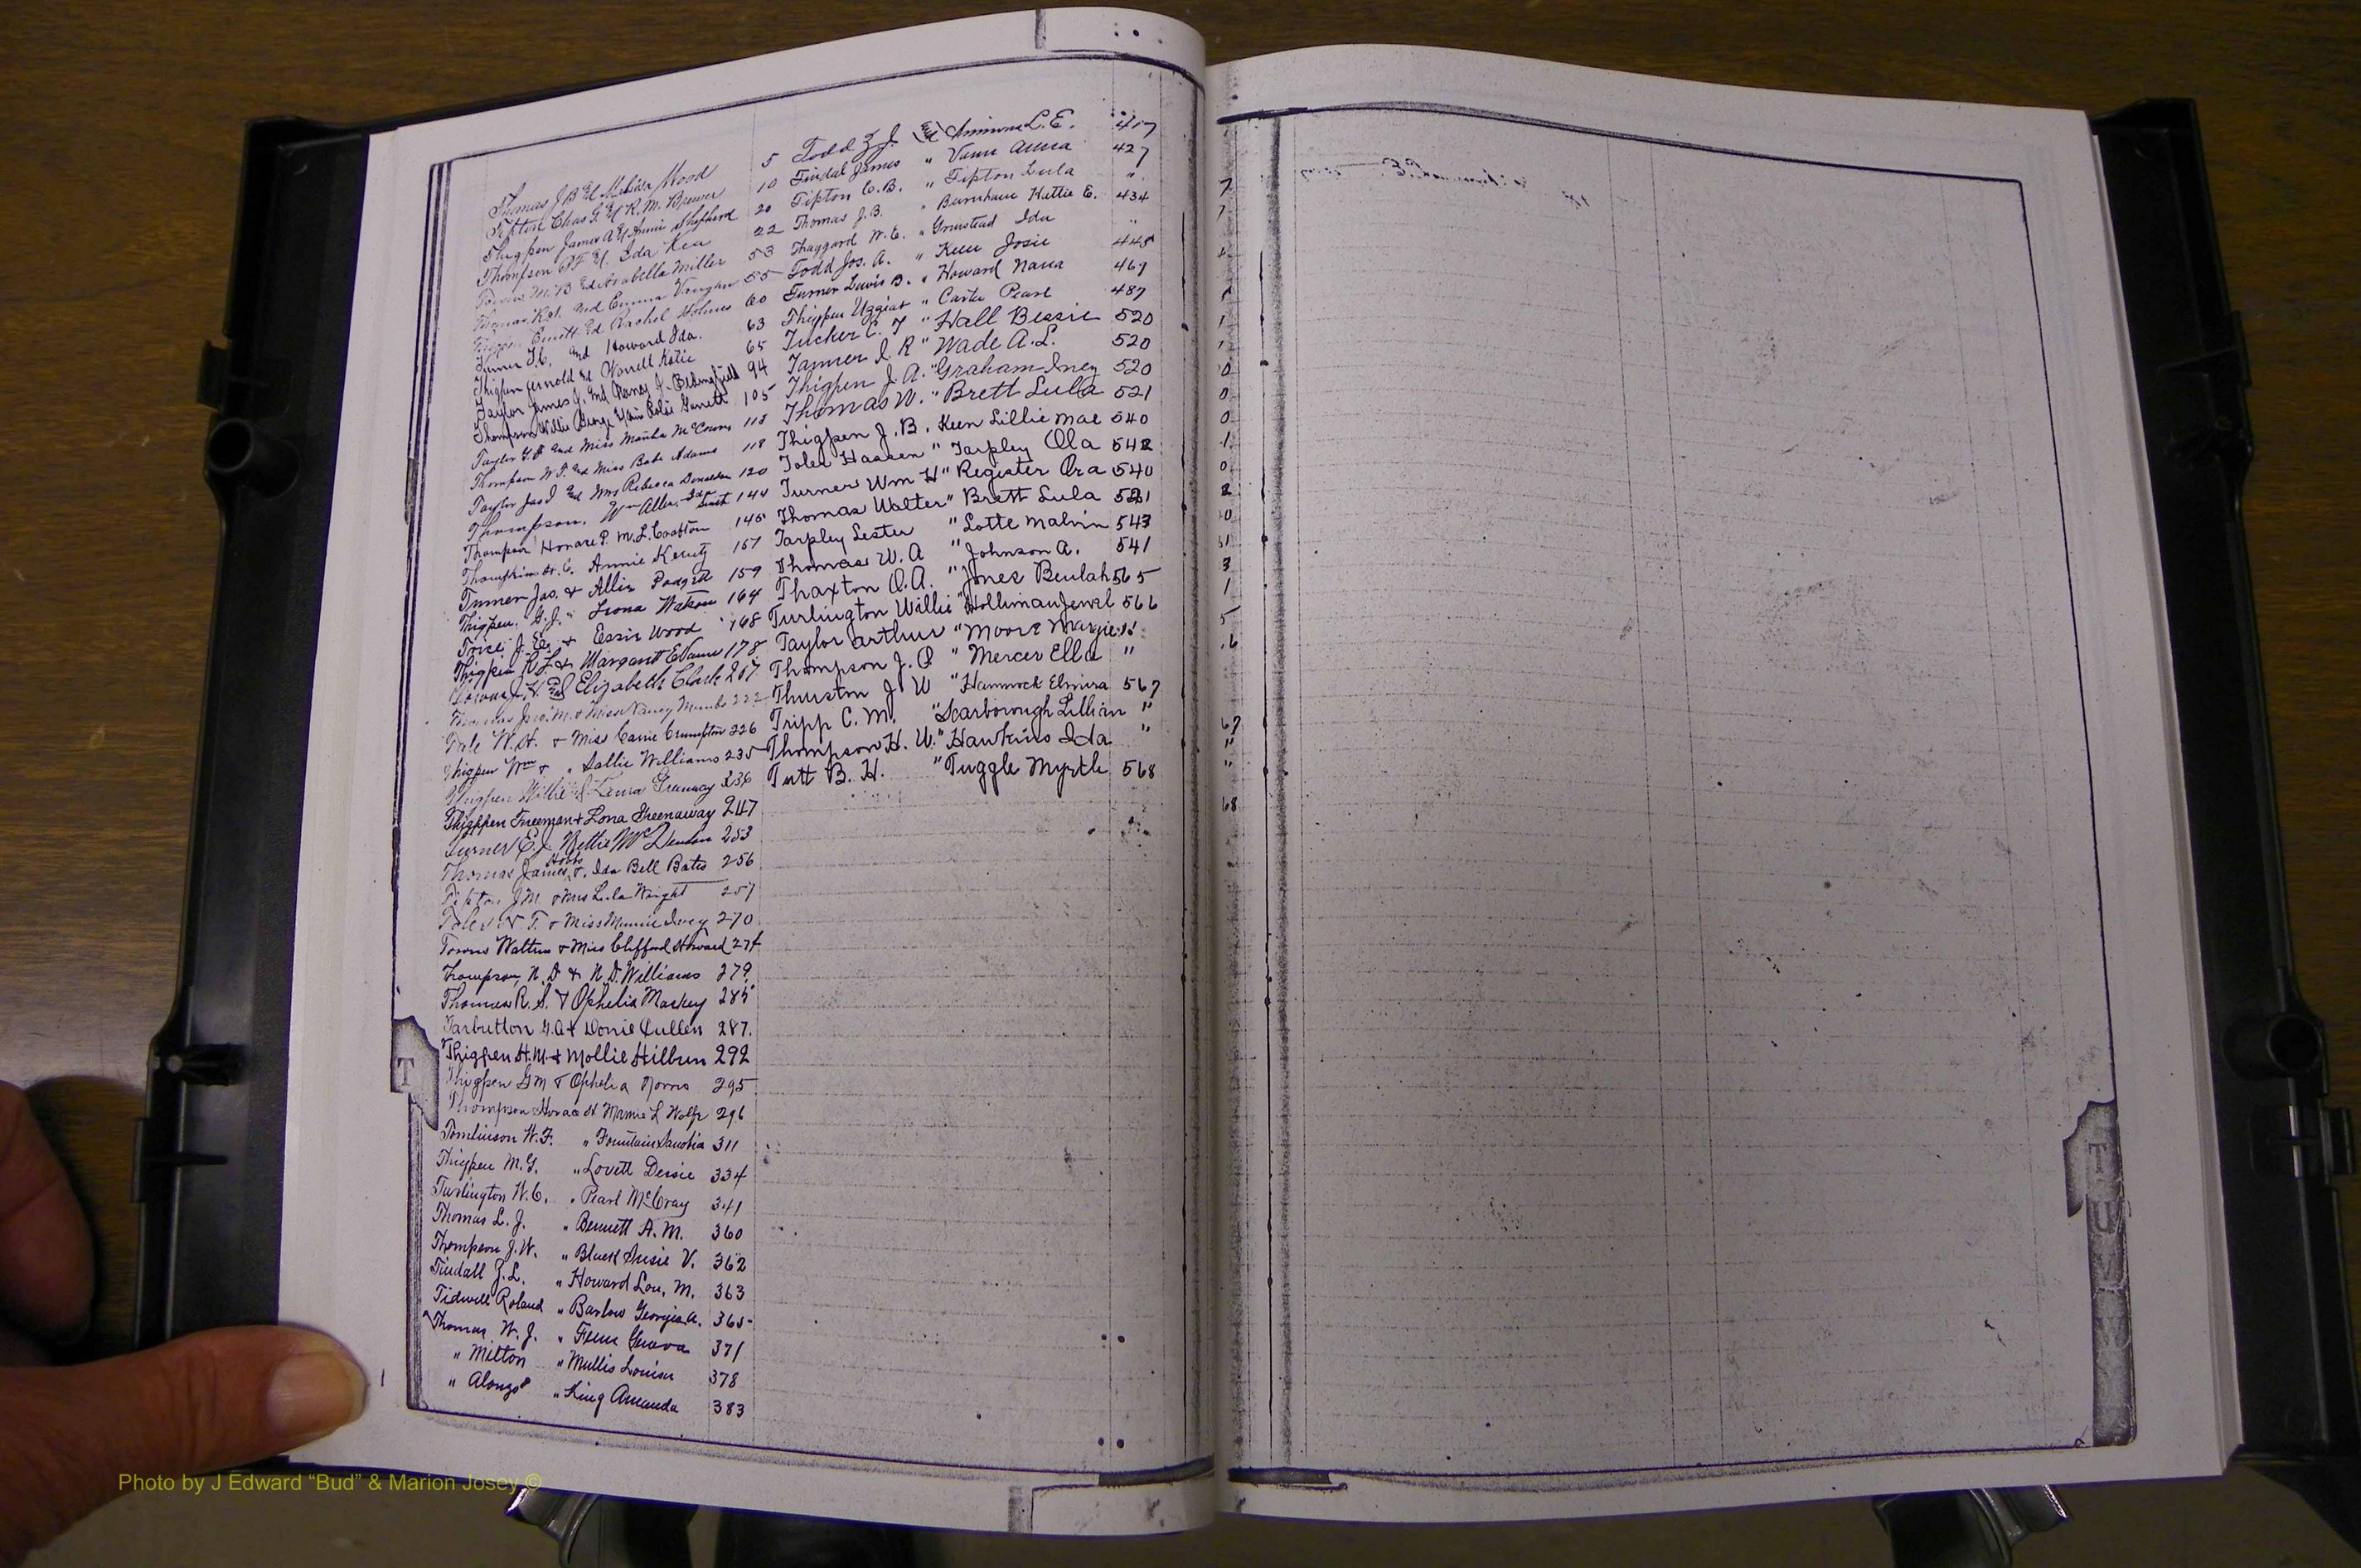 Thomas J B & Melissa Wood 5
Tipton Chas G & R. M. Brewer 10
Thigpen James A & Annie Shepherd 20
Thompson P F & Ida Kea 22
M. B and Arabella Miller 53
Thomas R. S. and Emma Vaughn 55
Thigpen Emmett & Rachel Holmes 60
Turner and Howard Ida. 63
Thigpen Arnold & Worrell Katie 65
Taylor James J. and Nancy J. 94
Thompson Willie George Garrett 105
Taylor and Miss Martha McCowen 113
Thompson W. J. and Miss Babe Adams 118
Taylor Jas J and Mrs Rebecca Donaldson 120
Thompson. Wm Allen Ida Scott 144
Thompson Horace P. M. L. Crafton 145
Thompkins H. C. Annie Kersey 157
Turner Jas. & Allie Padgett 159
Thigpen, G. J. " Leona Watson 164
Trice J. E. & Essie Wood 168
Thigpen R L & Margaret Evans 178
J. H. and Elizabeth Clark 217
Thomas Jno. M. & Miss Nancy 222
Tale W. H. & Miss Carrie Crumpton 226
Thigpen Wm & " Sallie Williams 235
Thigpen Willie & Lena Greenway 236
Thigpen Freeman & Lona Greenaway 247
Turner E. J. Bettie McLendon 253
Thomas James Hobbs & Ida Bell Bates 256
Tipton J M & Mrs Lula Wright 257
T. & Miss Minnie Ivey 270
Towns Walter & Miss Clifford Howard 274
Thompson N. D & N. D. Williams 279
Thomas R. S. & Ophelia Mackey 285
Tarbutton G. A & Donie Cullen 287.
Thigpen H. M. & Mollie Hilbun 292
Thigpen G M & Ophelia Norris 295
Thompson Horace H Mamie L Wolfe 296
Tomlinson W. F. " Fountain 311
Thigpen M. G. " Lovett Dessie 334
Turlington W. C. " Pearl McCray 341
Thomas L. J. " Bennett A. M. 360
Thompson J. W. " Black Susie V. 362
Tindall J. L. " Howard Lou, M. 363
Tidwell Roland " Barlow Georgia A. 365
Thomas W. J. " Geneva 371
" Milton " Mullis Louisa 378
" Alonzo " King Amanda 383
Todd Z. J. and L. E. 417
Tindal James " Vann Anna 427
Tipton C. B. " Tipton Lula "
Thomas J. B. " Burnham Hattie E. 434
Thaggard W. C. " Grinstead Ida "
Todd Jos. A. " Keen Josie 445
Turner Lewis B. " Howard Nana 467
Thigpen Uzziat " Carter Pearl 487
Tucker C. T " Hall Bessie 520
Tanner J. R " Wade A. L. 520
Thigpen J. A. " Graham Inez 520
Thomas W. " Brett Lula 521
Thigpen J. B. Keen Lillie Mae 540
Toler Haasen " Tarpley Ola 542
Turner Wm H " Register Ora 540
Thomas Walter " Brett Lula 521
Tarpley Lester " Lotte Malvin 543
Thomas W. A " Johnson A. 541
Thaxton O. A. " Jones Beulah 565
Turlington Willie " Holliman Jewel 566
Taylor Arthur " Moore Margie "
Thompson J. O " Mercer Ella "
Thurston J W " Hammock Elmira 567
Tripp C. M. " Scarborough Lillian "
Thompson H. W. " Hawkins Ida "
Tutt B. H. " Tuggle Myrtle 568
T
T
U
V
W
Photo by J Edward “Bud” & Marion Josey ©